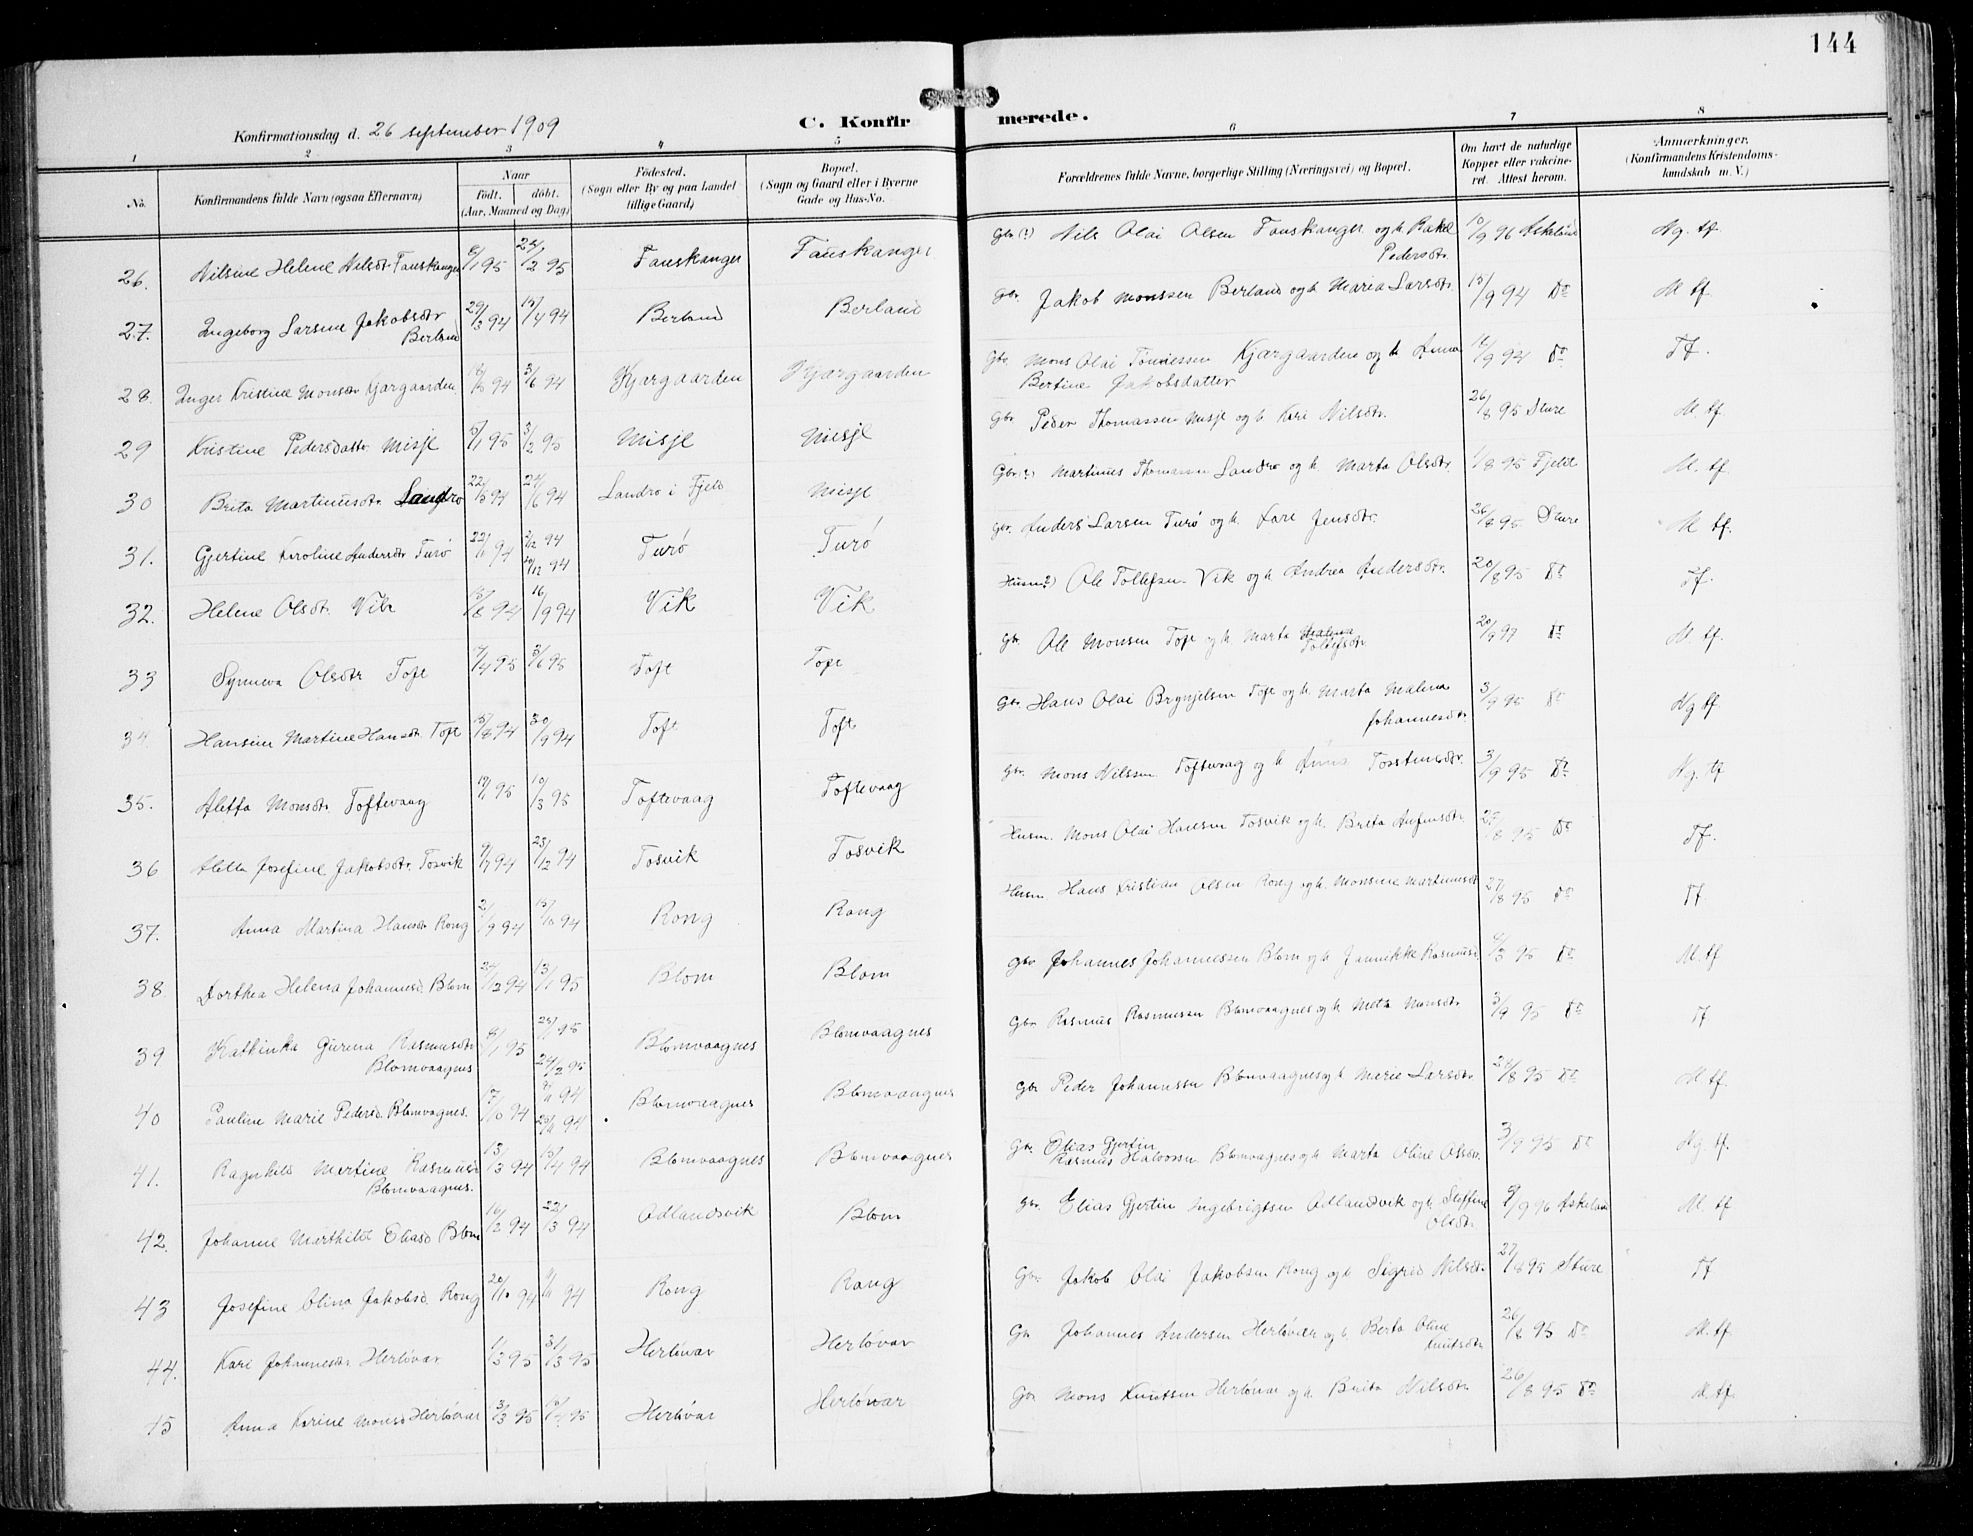 144
Konfirmationsdag d. 26 september 1909
C. Konfirmerede.
1 2 3 4 5 6 7 8
No. Konfirmandens fulde Navn (ogsaa Efternavn) Naar født. døbt. (Aar, Maaned og Dag) Fødested. (Sogn eller By og paa Landet tillige Gaard) Bopæl. (Sogn og Gaard eller i Byerne Gade og Hus-No. Forældrenes fulde Navne, borgerlige Stilling (Næringsvei) og Bopæl. Om havt de naturlige Kopper eller vaccineret. Attest herom. Anmærkninger. (Konfirmandens Kristendomskundskab m. V.)
26. Nilsine Helene Nilsdtr Fauskanger 95 95 Fauskanger Fauskanger Gbr (?) Nils Olai Olsen Fauskanger og h Rakel Pedersdtr. 10/9 96 Askeland Ng. tf
27. Ingeborg Larsine Jakobsdtr Berland 29/3 94 15/4 94 Berland Berland Gbr. Jakob Monssen Berland og h Maria Larsdtr. 15/9 94 Do M tf.
28. Inger Kristine Monsdtr Kjærgaarden 94 3/6 94 Kjærgaarden Kjærgaarden Gbr Mons Olai Kjærgaarden og h Anna Bertine Jakobsdatter 94 Do Tf.
29 Kristine Pedersdattr Misje 5/1 95 3/2 95 Misje Misje Gbr Peder Thomassen Misje og h Kari Nilsdtr. 26/8 95 Sture M. tf
30 Brita Martinusdtr. Landro 94 24/6 94 Landro i Fjeld Misje Gbr (?) Martinus Thomassen Landro og h. Marta Olsdtr. 1/8 95 Fjeld M. tf.
31. Gjertine Karoline Andersdtr Turø 94 2/12 94 30/12 94 Turø Turø Gbr. Anders Larsen Turø og h. Kari Jensdtr. 26/8 95 Sture M tf.
32. Helene Olsdtr. Vik 94 16/9 94 Vik Vik Husm ?) Ole Tollefsen Vik og h Andrea Andersdtr. 20/8 95 Do Tf.
33 Synneva Olsdtr Toft 7/4 95 3/6 95 Toft Toft Gbr. Ole Monsen Toft og h Marta Tollefsdtr 20/9 97 Do M. tf.
34. Martine Hansdtr. Toft 94 30/9 94 Toft Toft Gbr Hans Olai Brynjelsen Toft og h Marta Malena Johannesdtr 3/9 95 Do Ng tf
35. Aletta Monsdtr Toftevaag 95 10/3 95 Toftevaag Toftevaag Gbr. Mons Nilssen Toftevaag og h 3/9 95 Do Ng. tf
36 Aletta Josefine Jakobsdtr. Tosvik 94 23/12 94 Tosvik Tosvik Husm. Mons Olai Hansen Tosvik og h. Brita 8 95 Do Tf.
37. Anna Martina Hansdtr Rong 2/9 94 15/10 94 Rong Rong Husm Hans Kristian Olsen Rong og h. Monsine Martinusdtr 27/8 95 Do Tf
38 Dorthea Helena Johannesd. Blom 94 13/1 95 Blom Blom Gbr Johannes Johannessen Blom og h Jannikke Rasmusd 95 Do M. tf
39 Kathinka Gurina Rasmusdtr Blomvaagnes 8/1 95 95 24/2 95 Blomvaagnes Blomvaagnes Gbr Rasmus Rasmussen Blomvaagnes og h Meta Monsdtr 3/9 95 Do Tf
40 Pauline Marie Pedersd. Blomvagnes. 17/10 94 94 94 Blomvaagnes Blomvaagnes Gbr Peder Johannssen Blomvaagnes og h Marie Larsdtr 8 95 Do M tf.
41. Ragnhild Martine Rasmusd Blomvaagnes. 13/3 94 15/4 94 Blomvaagnes Blomvaagnes Gbr Elias Gjertin Rasmus Halvorsen Blomvagnes og h Marta Oline Olsdtr. 3/9 95 Do Ng. tf.
42. Johanne Marthilde Eliasd Blom 16/2 94 22/3 94 Adlandsvik Blom Gbr. Elias Gjertin Ingebrigtsen Adlandsvik og h Steffine Olsdtr 9/9 96 Askeland M. tf
43 Josefine Olina Jakobsd. Rong 20/10 94 11 94 Rong Rong Gbr. Jakob Olai Jakobsen Rong og h Sigrid Nilsdtr 27/8 95 Sture Tf
44. Kari Johannesdtr Herløvær 1/3 95 31/3 95 Herløvær Herløvær Gbr Johannes Andersen Herløvær og h. Berta Oline Knutsdtr 26/8 95 Do M. tf.
45 Anna Karine Monsd Herløvær 13/3 95 95 Herløvær Herløvær Gbr Mons Knutsen Herløvær og h Brita Nilsdtr 26/8 95 Do M. tf.